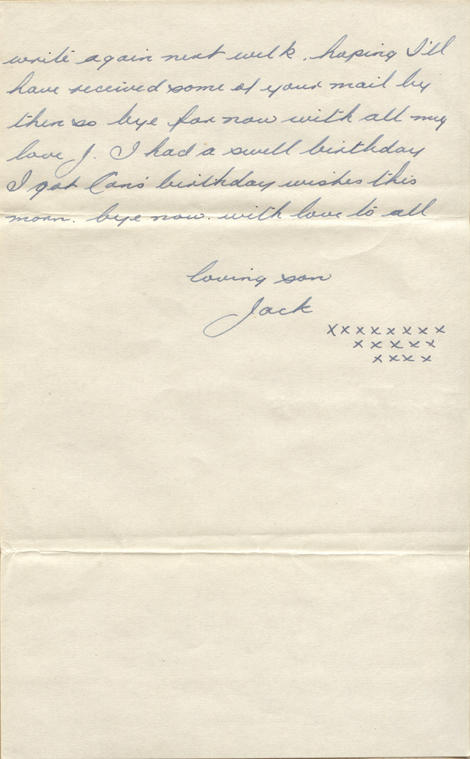 write again next week. hoping I'll
have received some of your mail by
then so bye for now with all my
love J. I had a swell birthday
I got birthday wishes this
morn. bye now. with love to all
loving son
Jack
xxxxxxxx
xxxxx
xxxx